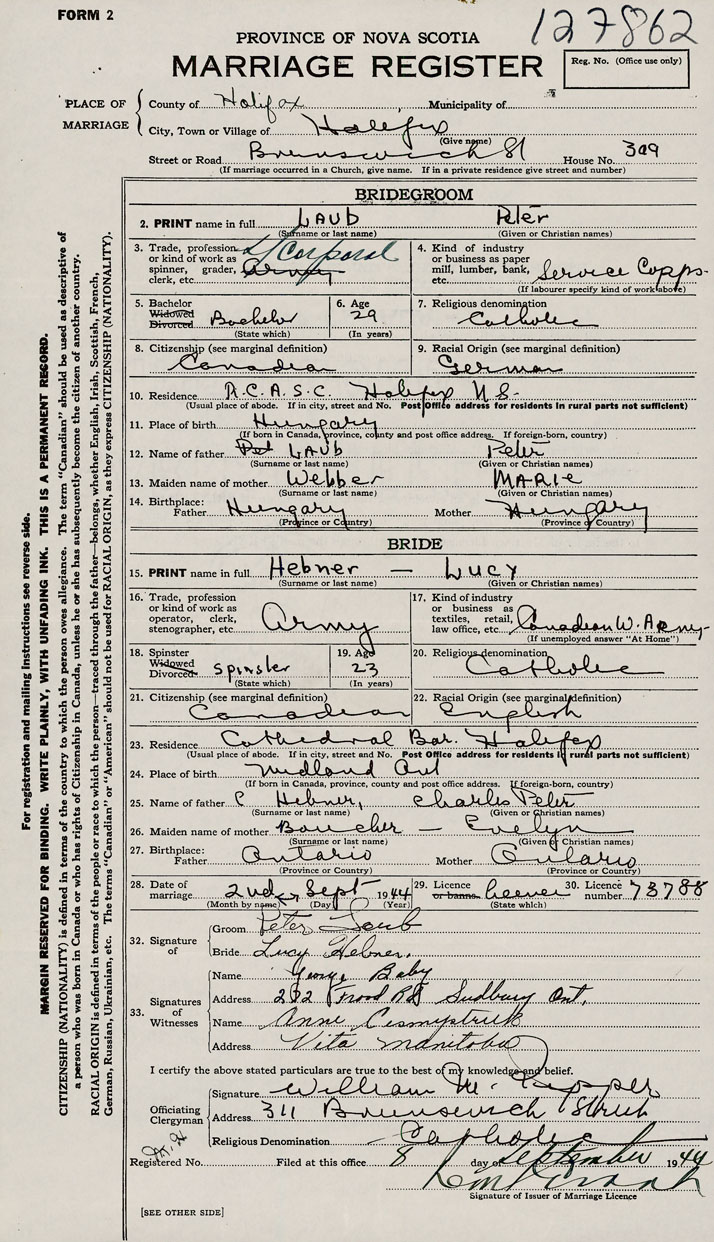 FORM 2
127862
PROVINCE OF NOVA SCOTIA
MARRIAGE REGISTER
Reg. No. (Office use only)
PLACE OF MARRIAGE
County of Halifax Municipality of
City, Town or Village of Halifax
(Give name)
Street or Road Brunswick St House No. 309
(If marriage occurred in a Church, give name. If in a private residence give street and number)
BRIDEGROOM
2. PRINT name in full LAUB Peter
(Surname or last name) (Given or Christian names)
3. Trade, profession or kind of work as spinner, grader, clerk, etc. L/Corporal Army
4. Kind of industry or business as paper mill, lumber, bank, etc. Service Corps.
(If labourer specify kind of work above)
5. Bachelor Widowed Divorced Bachelor
(State which)
6. Age 29
(In years)
7. Religious denomination Catholic
8. Citizenship (see marginal definition) Canadian
9. Racial Origin (see marginal definition) German
10. Residence R.C.A.S.C. Halifax N.S.
(Usual place of abode. If in city, street and No. Post Office address for residents in rural parts not sufficient)
11. Place of birth Hungary
(If born in Canada, province, county and post office address. If foreign-born, country)
12. Name of father Pet LAUB Peter
(Surname or last name) (Given or Christian names)
13. Maiden name of mother Webber MARIE
(Surname or last name) (Given or Christian names)
14. Birthplace: Father Hungary Mother Hungary
(Province or Country) (Province or Country)
BRIDE
15. PRINT name in full Hebner — LUCY
(Surname or last name) (Given or Christian names)
16. Trade, profession or kind of work as operator, clerk, stenographer, etc. Army
17. Kind of industry or business as textiles, retail, law office, etc. Canadian W. Army
(If unemployed answer "At Home")
18. Spinster Widowed Divorced Spinster
(State which)
19. Age 23
(In years)
20. Religious denomination Catholic
21. Citizenship (see marginal definition) Canadian
22. Racial Origin (see marginal definition) English
23. Residence Cathedral Bar. Halifax
(Usual place of abode. If in city, street and No. Post Office address for residents in rural parts not sufficient)
24. Place of birth Midland Ont
(If born in Canada, province, county and post office address. If foreign-born, country)
25. Name of father C Hebner, Charles Peter
(Surname or last name) (Given or Christian names)
26. Maiden name of mother Boucher — Evelyn
(Surname or last name) (Given or Christian names)
27. Birthplace: Father Ontario Mother Ontario
(Province or Country) (Province or Country)
28. Date of marriage 2nd, Sept 1944
(Month by name) (Day) (Year)
29. Licence or banns licence
(State which)
30. Licence number 73788
32. Signature of
Groom Peter Laub
Bride Lucy Hebner.
33. Signatures of Witnesses
Name George Baby
Address 292 Frood Rd Sudbury Ont.
Name Anne
Address Vita Manitoba
I certify the above stated particulars are true to the best of my knowledge and belief.
Officiating Clergyman
Signature William M.
Address 311 Brunswick Street
Religious Denomination Catholic
Registered No. Filed at this office 8 day of September 1944
Signature of Issuer of Marriage Licence
[SEE OTHER SIDE]
For registration and mailing instructions see reverse side.
MARGIN RESERVED FOR BINDING. WRITE PLAINLY, WITH UNFADING INK. THIS IS A PERMANENT RECORD.
CITIZENSHIP (NATIONALITY) is defined in terms of the country to which the person owes allegiance. The term "Canadian" should be used as descriptive of
a person who was born in Canada or who has rights of Citizenship in Canada, unless he or she has subsequently become the citizen of another country.
RACIAL ORIGIN is defined in terms of the people or race to which the person—traced through the father—belongs, whether English, Irish, Scottish, French,
German, Russian, Ukrainian, etc. The terms "Canadian" or "American" should not be used for RACIAL ORIGIN, as they express CITIZENSHIP (NATIONALITY).